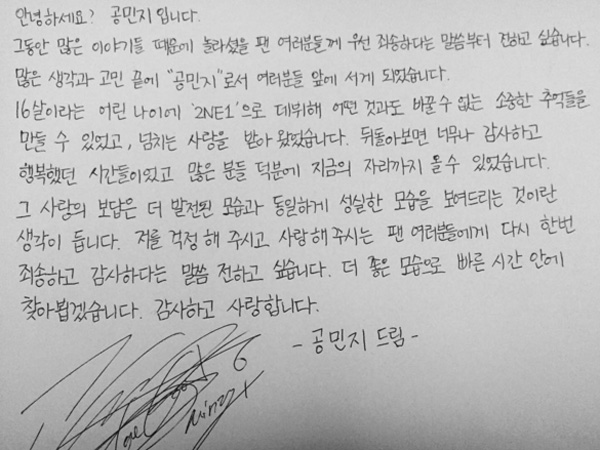 안녕하세요? 공민지 입니다.
그동안 많은 이야기들 때문에 놀라셨을 팬 여러분들께 우선 죄송하다는 말씀부터 전하고 싶습니다.
많은 생각과 고민 끝에 "공민지"로서 여러분들 앞에 서게 되었습니다.
16살이라는 어린 나이에 '2NE1'으로 데뷔해 어떤 것과도 바꿀 수 없는 소중한 추억들을
만들 수 있었고, 넘치는 사랑을 받아 왔었습니다. 뒤돌아보면 너무나 감사하고
행복했던 시간들이었고 많은 분들 덕분에 지금의 자리까지 올 수 있었습니다.
그 사랑의 보답은 더 발전된 모습과 동일하게 성실한 모습을 보여드리는 것이란
생각이 듭니다. 저를 걱정 해 주시고 사랑해 주시는 팬 여러분들에게 다시 한번
죄송하고 감사하다는 말씀 전하고 싶습니다. 더 좋은 모습으로 빠른 시간 안에
찾아뵙겠습니다. 감사하고 사랑합니다.
- 공민지 드림 -